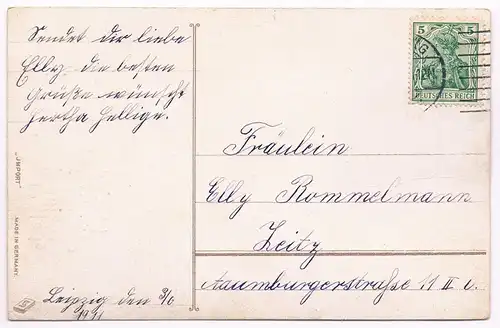 Sendet dir liebe
Elly die besten
Grüße wünscht
Hertha Hellige.
Leipzig den 3/6
1911
5 5
DEUTSCHES REICH
Fräulein
Elly Rommelmann
Zeitz
Naumburgerstraße 11 II
"IMPORT"
MADE IN GERMANY.